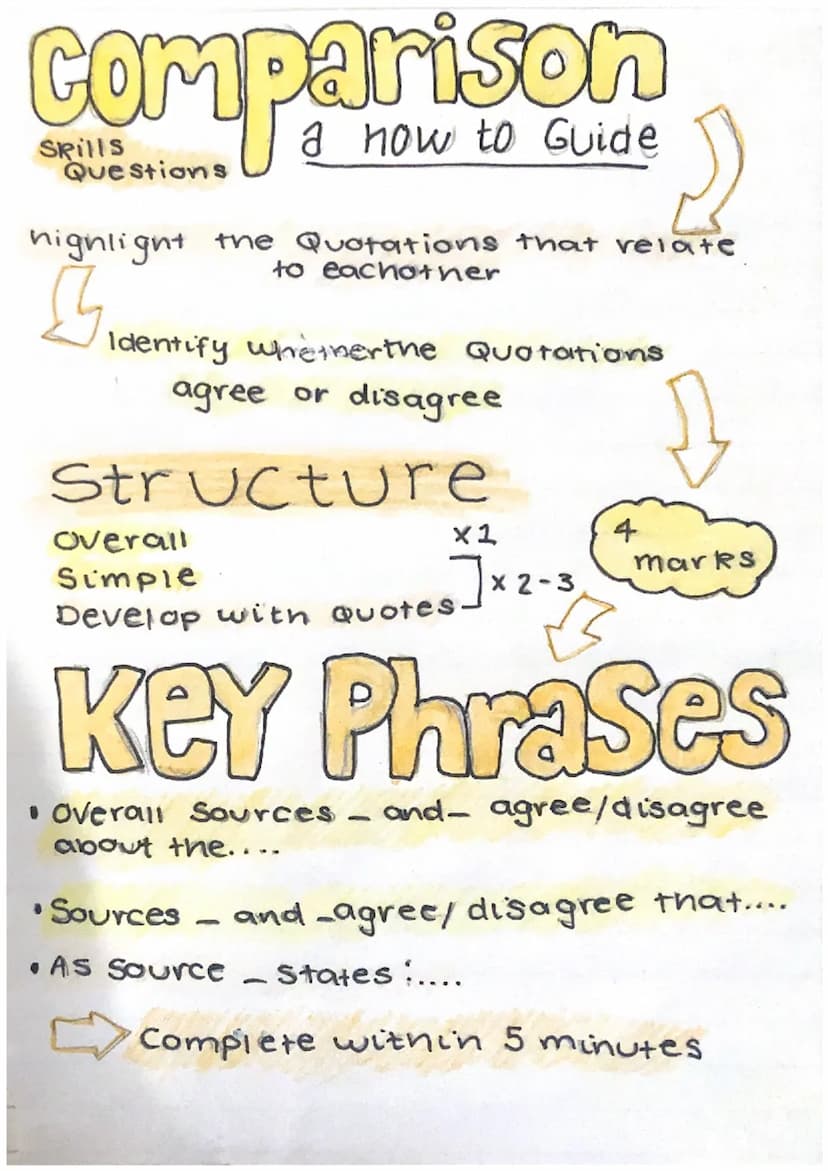 Comparison
a how to Guide
Skills
Questions
highlight the Quotations that relate
to eachother
Identify whetherthe Quotations
agree or disagree
Structure
Overall x1
Simple
Develop with quotes ] x 2-3
4
marks
Key Phrases
• Overall Sources _ and _ agree/disagree
about the....
• Sources _ and _ agree/disagree that....
• As Source _ States :....
Complete within 5 minutes